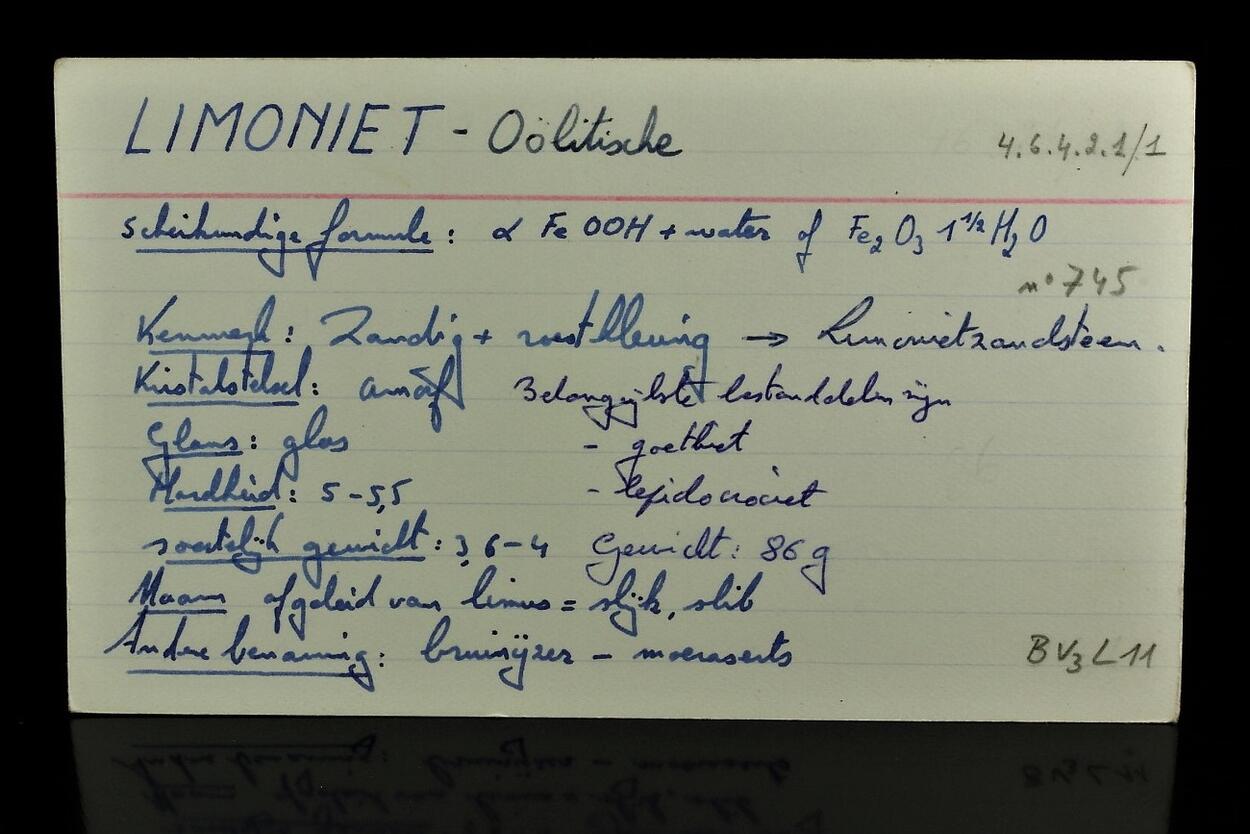 LIMONIET - Oölitische 4.6.4.2.1/1
Scheikundige formule: α Fe OOH + water of Fe₂O₃ 1 1/2 H₂O
n° 745
Kenmerk: Zandig + roestkleurig → Limonietzandsteen.
Kristalstelsel: amorf Belangrijkste bestanddelen zijn
Glans: glas - goethiet
Hardheid: 5-5,5 - lepidocrociet
soortelijk gewicht: 3,6-4 Gewicht: 86 g
Naam afgeleid van limus = slijk, slib
Andere benaming: bruinijzer - moeraserts
BV₃L11